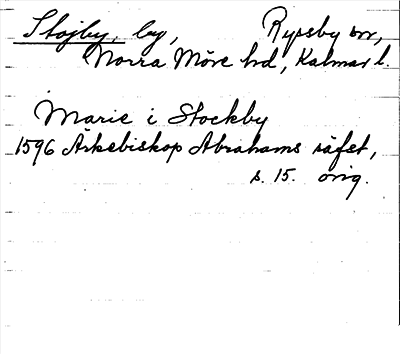 Slojby, by, Ryssby sn,
Norra Möre hd, Kalmar l.
Marie i Stockby
1596 Ärkebiskop Abrahams räfst,
s. 15. orig.